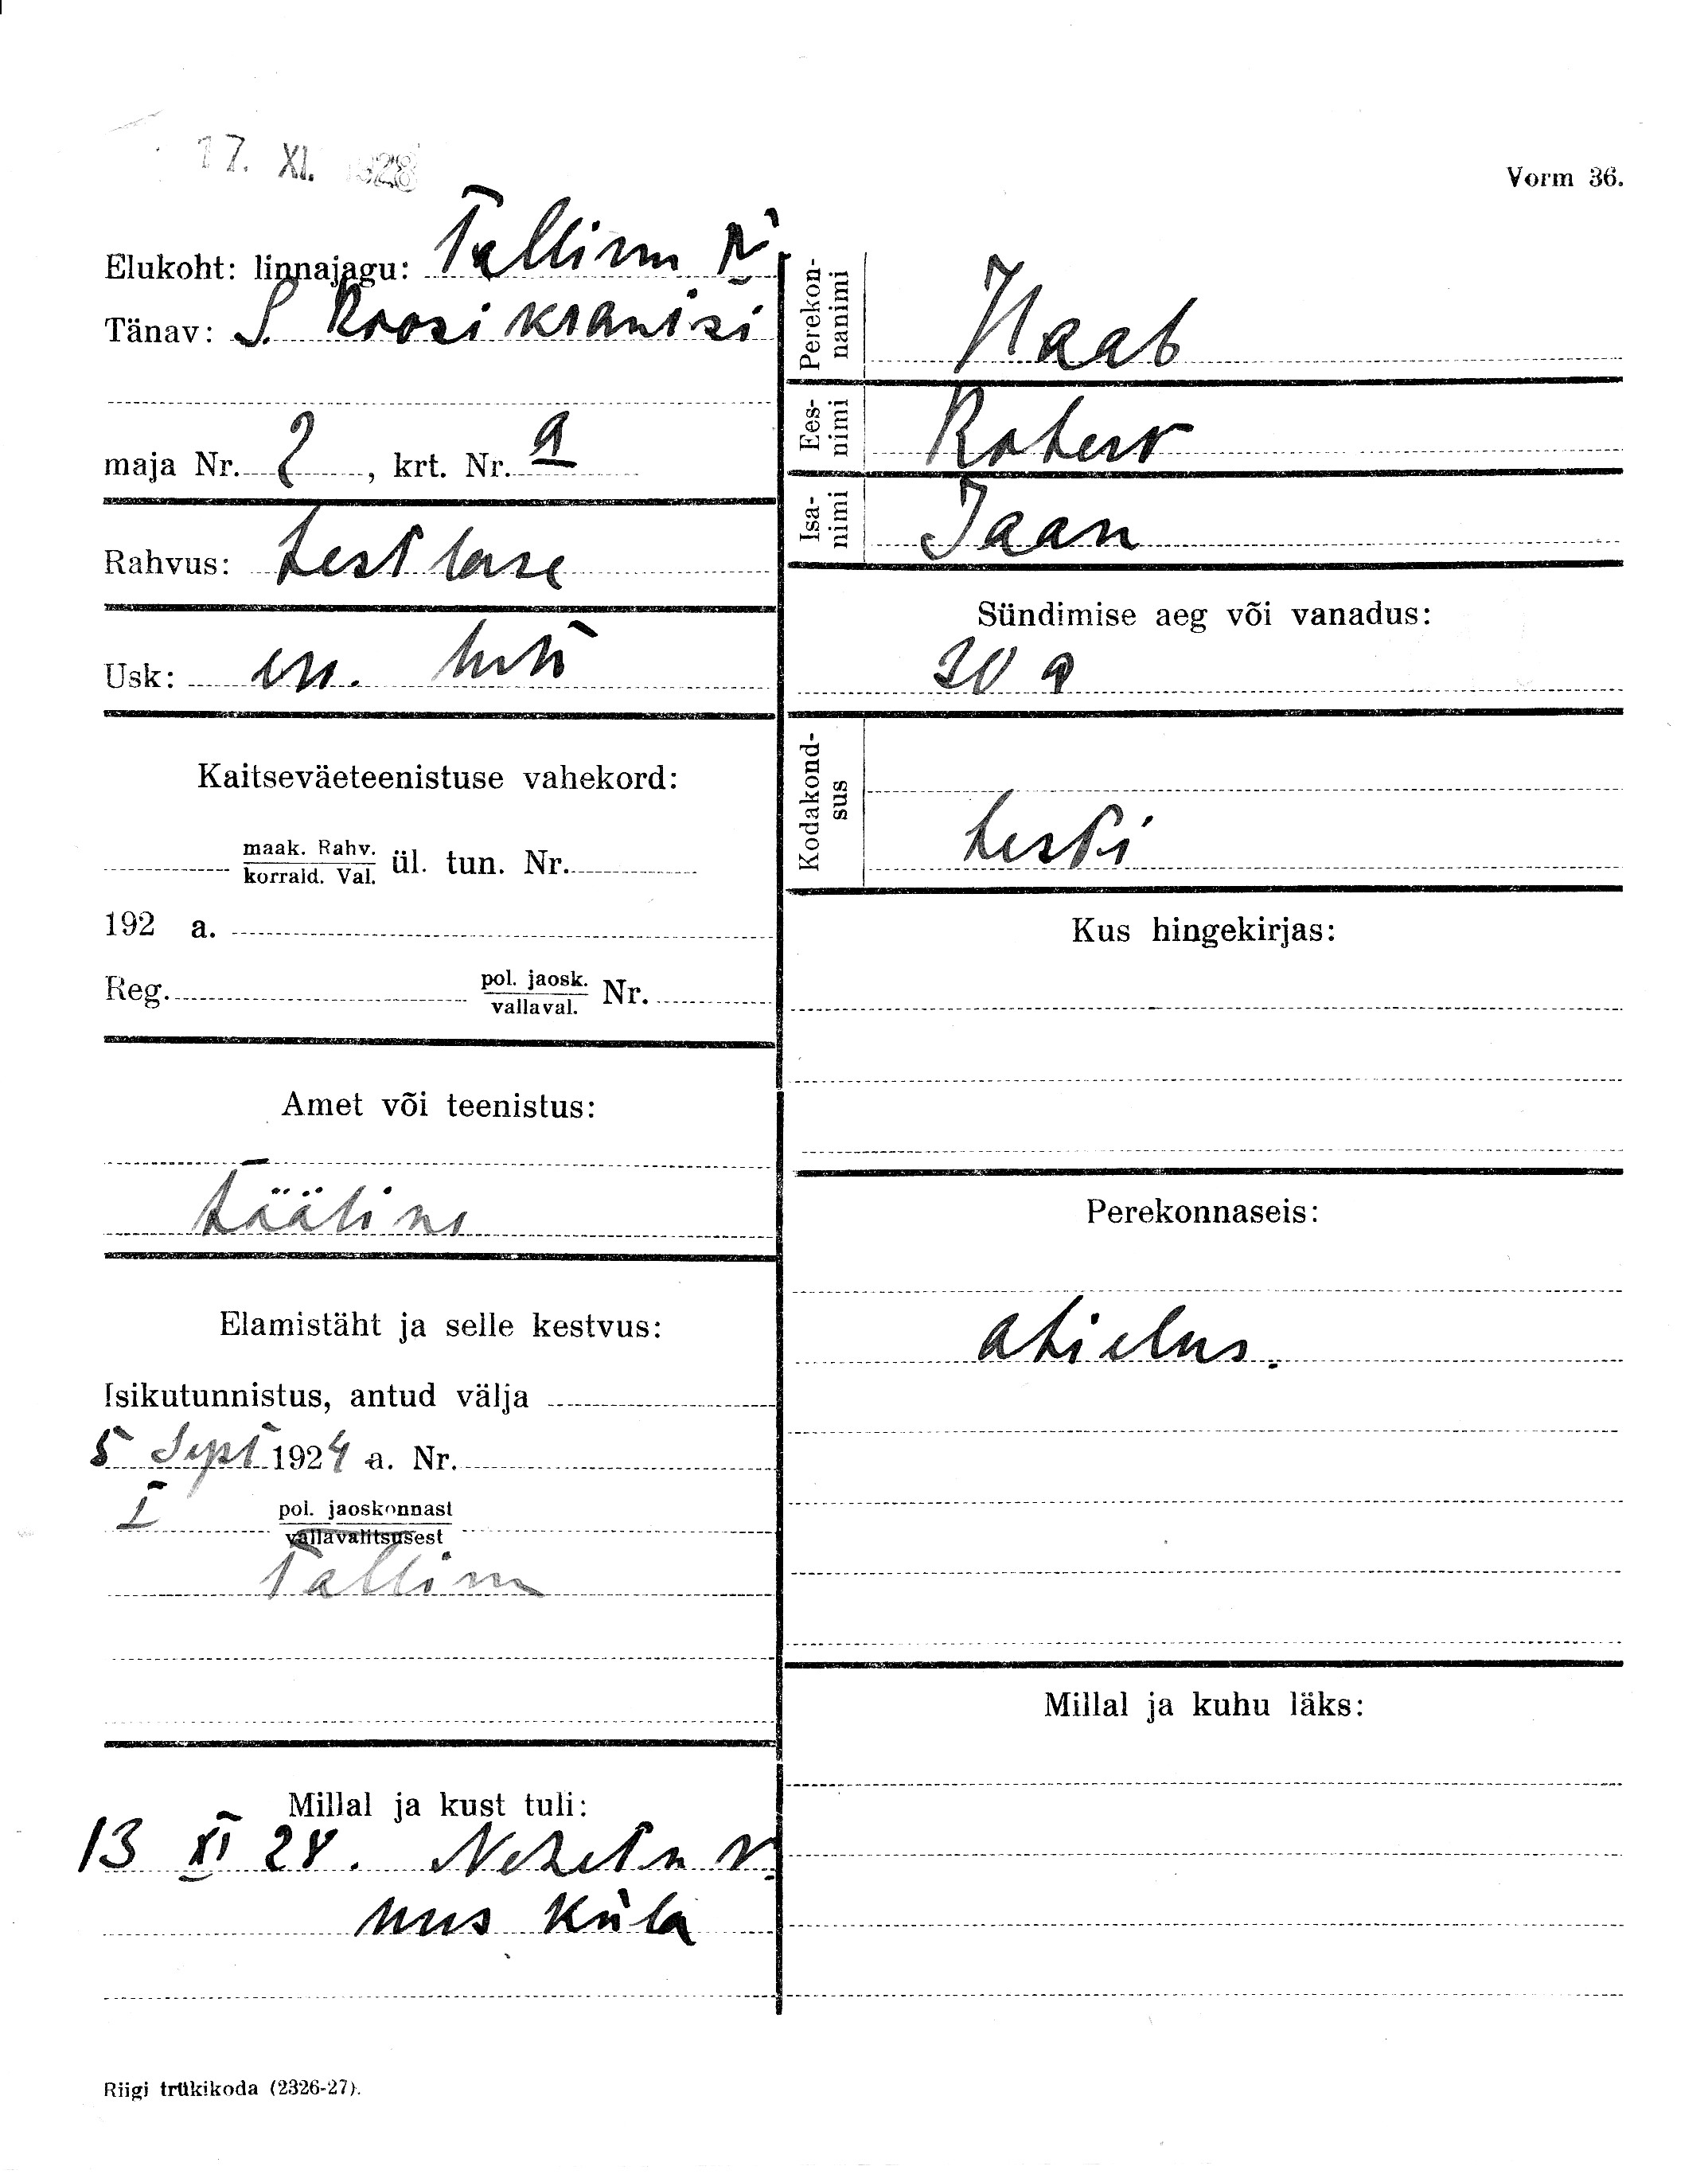 17. XI. 1928
Vorm 36.
Elukoht: linnajagu: Tallinn
Tänav: S. Roosikrantsi
maja Nr. 2, krt. Nr. 9
Rahvus: Eestlase
Usk: ev. luts
Kaitseväeteenistuse vahekord:
maak. Rahv.
korrald. Val. ül. tun. Nr.
192 a.
Reg. pol. jaosk.
vallaval. Nr.
Amet või teenistus:
tööline
Elamistäht ja selle kestvus:
Isikutunnistus, antud välja
5 Sept 1924 a. Nr.
I pol. jaoskonnast
vallavalitsusest
Tallinn
Millal ja kust tuli:
13 XI 28. Nehetu v.
uus küla
Riigi trükikoda (2326-27).
Perekon-
nanimi Haab
Ees-
nimi Robert
Isa-
nimi Jaan
Sündimise aeg või vanadus:
30 a
Kodakond-
sus Eesti
Kus hingekirjas:
Perekonnaseis:
abielus.
Millal ja kuhu läks: